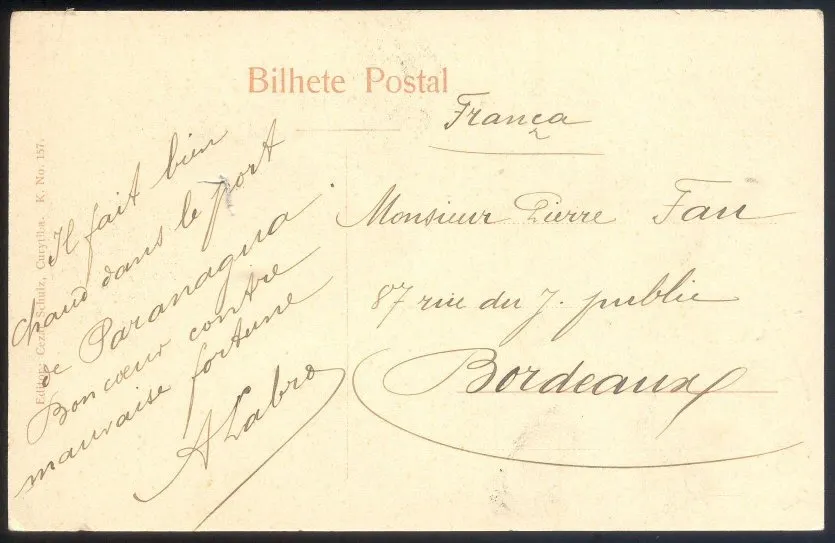 Bilhete Postal
França
Il fait bien
chaud dans le port
de Paranagua
Bon cœur contre
mauvaise fortune
A Labro
Monsieur Pierre Fau
87 rue du J. public
Bordeaux
Editor: Cezar Schulz, Curytiba. K. No. 157.